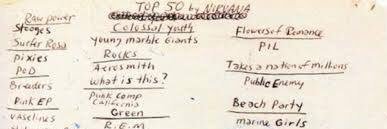 TOP 50 by NIRVANA
Raw power
Stooges
Surfer Rosa
Pixies
POD
Breeders
Pink EP
vaselines
Colossal youth
young marble Giants
Rocks
Aerosmith
What is this?
Punk Comp
California
Green
R.E.M
Flowers of Romance
PIL
Takes a nation of millions
Public Enemy
Beach Party
marine Girls